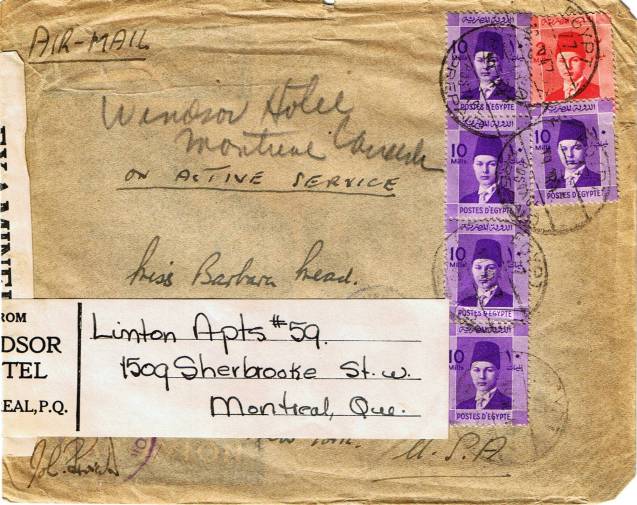 AIR-MAIL
Windsor Hotel
Montreal Canada
ON ACTIVE SERVICE
Miss Barbara Mead.
EXAMINE
ROM
DSOR
TEL
EAL, P.Q.
Linton Apts #59.
1509 Sherbrooke St. W.
Montreal, Que.
New York.
U.S.A
10
Mills
POSTES D'EGYPTE
EGYPT
10
Mills
POSTES D'EGYPTE
10
Mills
POSTES D'EGYPTE
10
Mills
POSTES D'EGYPTE
10
Mills
POSTES D'EGYPTE